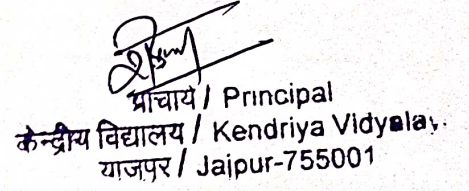 प्राचार्य / Principal
केन्द्रीय विद्यालय / Kendriya Vidyalay.
याजपुर / Jajpur-755001